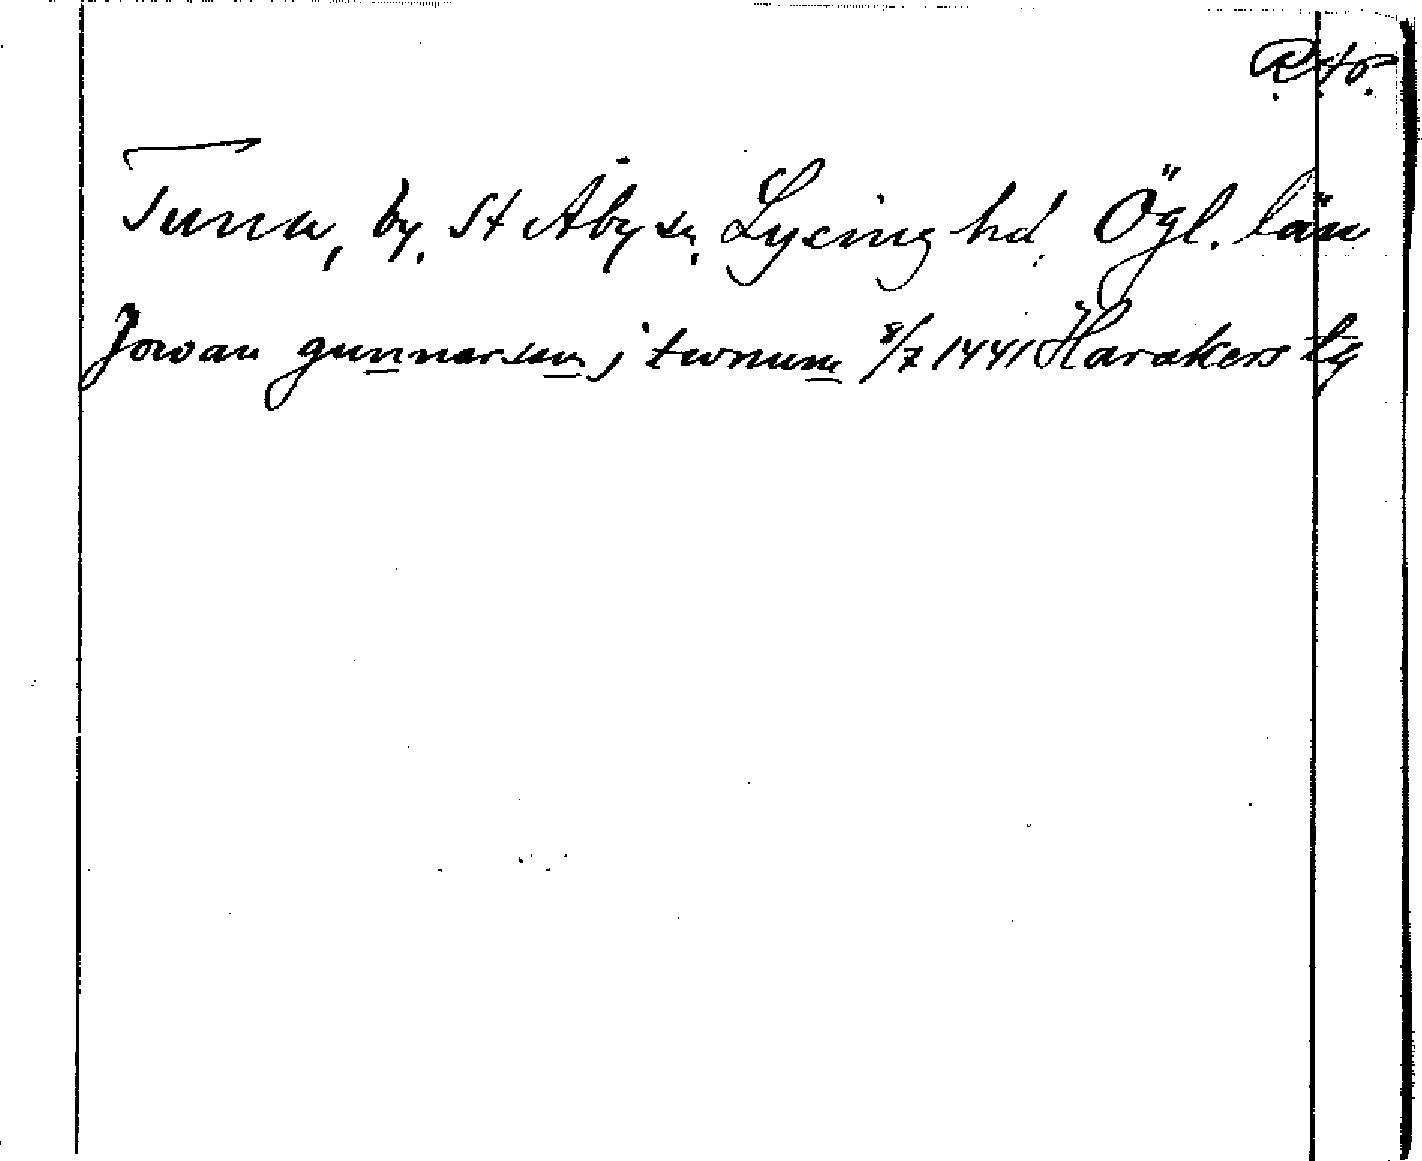 R.Ap.
Tuna, by, St Åby sn, Lysing hd, Ögl. län
Jowan gunnarson j twnum 8/7 1441 Harakers tg